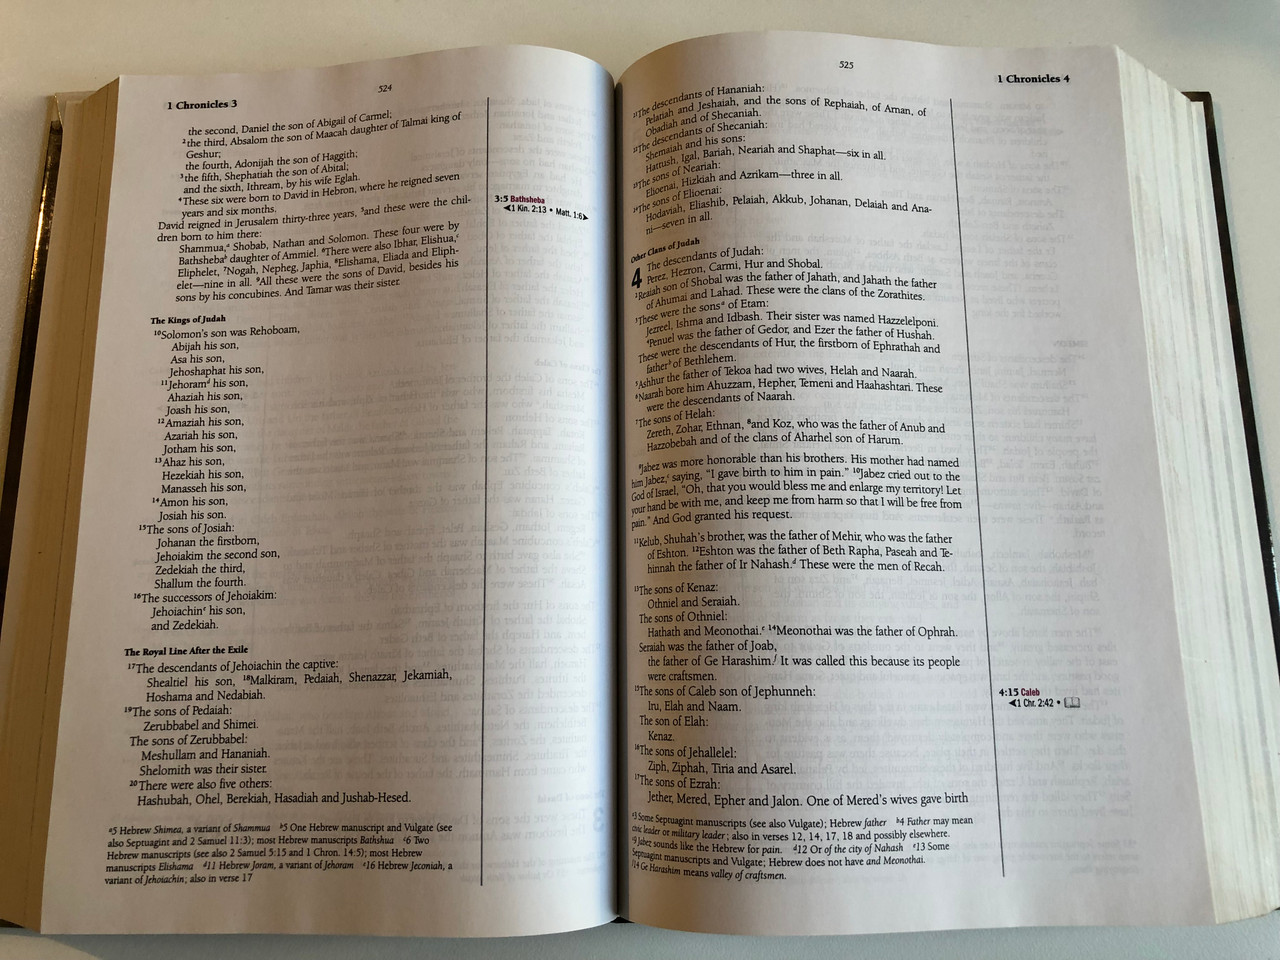 524
1 Chronicles 3
the second, Daniel the son of Abigail of Carmel;
2the third, Absalom the son of Maacah daughter of Talmai king of
Geshur;
the fourth, Adonijah the son of Haggith;
3the fifth, Shephatiah the son of Abital;
and the sixth, Ithream, by his wife Eglah.
4These six were born to David in Hebron, where he reigned seven
years and six months.
David reigned in Jerusalem thirty-three years, 5and these were the chil-
dren born to him there:
Shammua,a Shobab, Nathan and Solomon. These four were by
Bathshebab daughter of Ammiel. 6There were also Ibhar, Elishua,c
Eliphelet, 7Nogah, Nepheg, Japhia, 8Elishama, Eliada and Eliph-
elet—nine in all. 9All these were the sons of David, besides his
sons by his concubines. And Tamar was their sister.
3:5 Bathsheba
◄1 Kin. 2:13 • Matt. 1:6►
The Kings of Judah
10Solomon's son was Rehoboam,
Abijah his son,
Asa his son,
Jehoshaphat his son,
11Jehoramd his son,
Ahaziah his son,
Joash his son,
12Amaziah his son,
Azariah his son,
Jotham his son,
13Ahaz his son,
Hezekiah his son,
Manasseh his son,
14Amon his son,
Josiah his son.
15The sons of Josiah:
Johanan the firstborn,
Jehoiakim the second son,
Zedekiah the third,
Shallum the fourth.
16The successors of Jehoiakim:
Jehoiachine his son,
and Zedekiah.
The Royal Line After the Exile
17The descendants of Jehoiachin the captive:
Shealtiel his son, 18Malkiram, Pedaiah, Shenazzar, Jekamiah,
Hoshama and Nedabiah.
19The sons of Pedaiah:
Zerubbabel and Shimei.
The sons of Zerubbabel:
Meshullam and Hananiah.
Shelomith was their sister.
20There were also five others:
Hashubah, Ohel, Berekiah, Hasadiah and Jushab-Hesed.
a5 Hebrew Shimea, a variant of Shammua b5 One Hebrew manuscript and Vulgate (see
also Septuagint and 2 Samuel 11:3); most Hebrew manuscripts Bathshua c6 Two
Hebrew manuscripts (see also 2 Samuel 5:15 and 1 Chron. 14:5); most Hebrew
manuscripts Elishama d11 Hebrew Joram, a variant of Jehoram e16 Hebrew Jeconiah, a
variant of Jehoiachin; also in verse 17
525
1 Chronicles 4
21The descendants of Hananiah:
Pelatiah and Jeshaiah, and the sons of Rephaiah, of Arnan, of
Obadiah and of Shecaniah.
22The descendants of Shecaniah:
Shemaiah and his sons:
Hattush, Igal, Bariah, Neariah and Shaphat—six in all.
23The sons of Neariah:
Elioenai, Hizkiah and Azrikam—three in all.
24The sons of Elioenai:
Hodaviah, Eliashib, Pelaiah, Akkub, Johanan, Delaiah and Ana-
ni—seven in all.
Other Clans of Judah
4 The descendants of Judah:
Perez, Hezron, Carmi, Hur and Shobal.
2Reaiah son of Shobal was the father of Jahath, and Jahath the father
of Ahumai and Lahad. These were the clans of the Zorathites.
3These were the sonsa of Etam:
Jezreel, Ishma and Idbash. Their sister was named Hazzelelponi.
4Penuel was the father of Gedor, and Ezer the father of Hushah.
These were the descendants of Hur, the firstborn of Ephrathah and
fatherb of Bethlehem.
5Ashhur the father of Tekoa had two wives, Helah and Naarah.
6Naarah bore him Ahuzzam, Hepher, Temeni and Haahashtari. These
were the descendants of Naarah.
7The sons of Helah:
Zereth, Zohar, Ethnan, 8and Koz, who was the father of Anub and
Hazzobebah and of the clans of Aharhel son of Harum.
9Jabez was more honorable than his brothers. His mother had named
him Jabez,c saying, "I gave birth to him in pain." 10Jabez cried out to the
God of Israel, "Oh, that you would bless me and enlarge my territory! Let
your hand be with me, and keep me from harm so that I will be free from
pain." And God granted his request.
11Kelub, Shuhah's brother, was the father of Mehir, who was the father
of Eshton. 12Eshton was the father of Beth Rapha, Paseah and Te-
hinnah the father of Ir Nahash.d These were the men of Recah.
13The sons of Kenaz:
Othniel and Seraiah.
The sons of Othniel:
Hathath and Meonothai.e 14Meonothai was the father of Ophrah.
Seraiah was the father of Joab,
the father of Ge Harashim.f It was called this because its people
were craftsmen.
15The sons of Caleb son of Jephunneh:
Iru, Elah and Naam.
The son of Elah:
Kenaz.
16The sons of Jehallelel:
Ziph, Ziphah, Tiria and Asarel.
17The sons of Ezrah:
Jether, Mered, Epher and Jalon. One of Mered's wives gave birth
4:15 Caleb
◄1 Chr. 2:42 •
a3 Some Septuagint manuscripts (see also Vulgate); Hebrew father b4 Father may mean
civic leader or military leader; also in verses 12, 14, 17, 18 and possibly elsewhere.
c9 Jabez sounds like the Hebrew for pain. d12 Or of the city of Nahash e13 Some
Septuagint manuscripts and Vulgate; Hebrew does not have and Meonothai.
f14 Ge Harashim means valley of craftsmen.